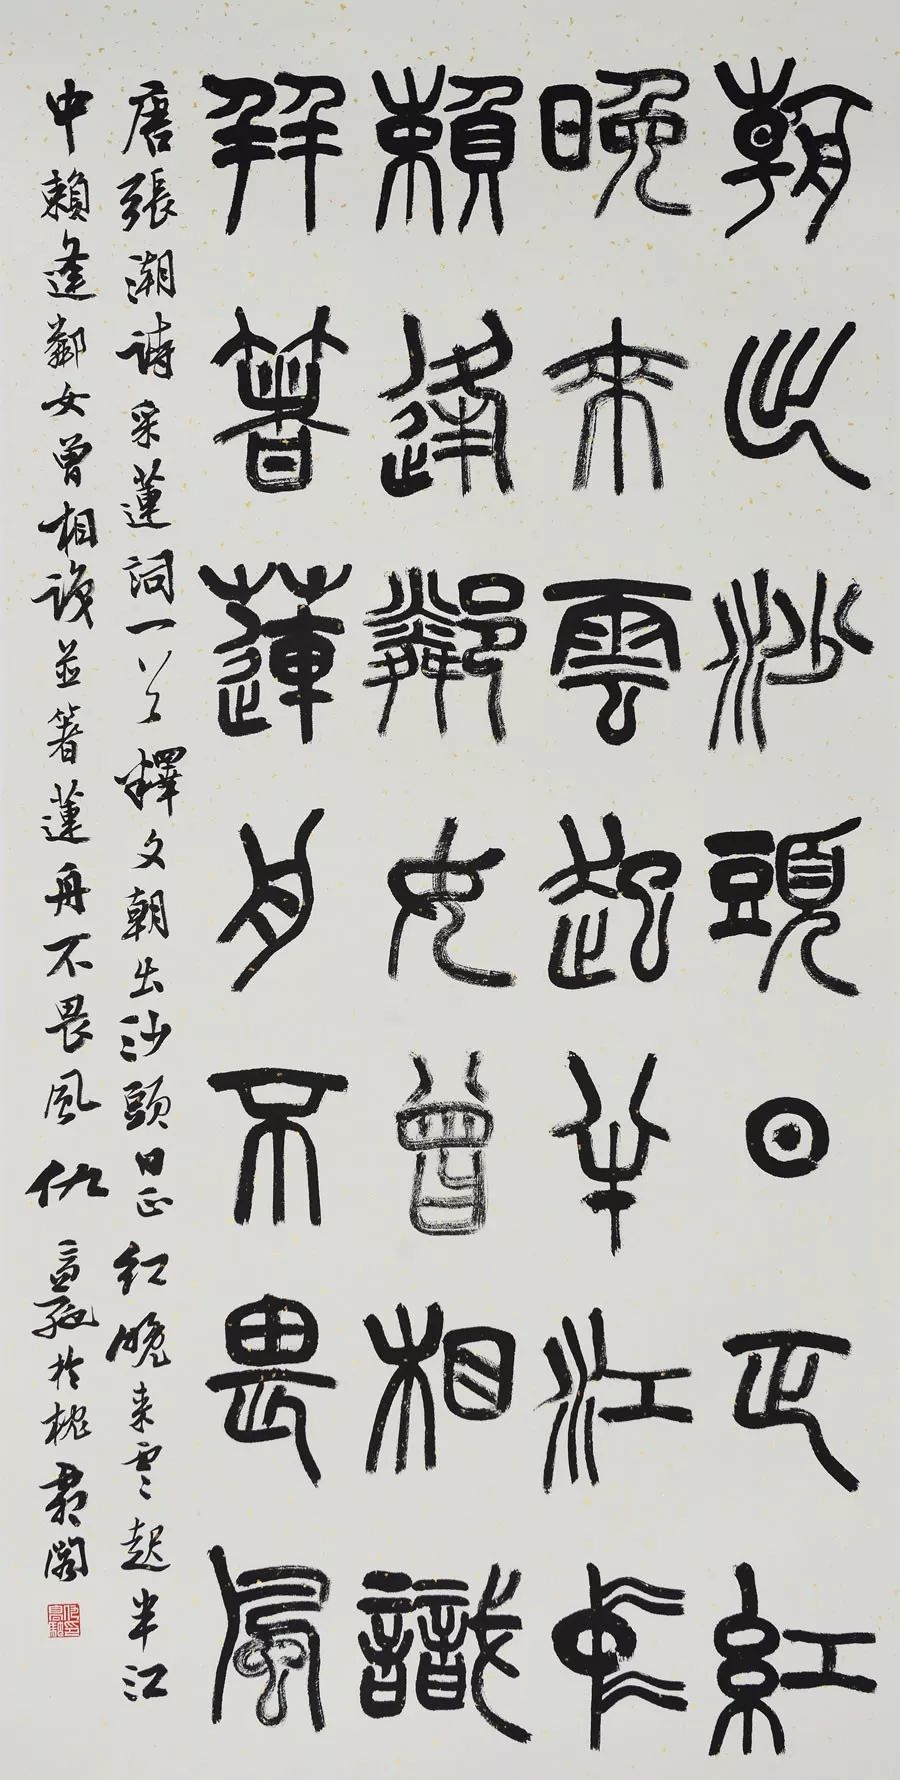 朝出沙頭日正紅
晚來雲起半江中
賴逢鄰女曾相識
並著蓮舟不畏風
唐張潮詩采蓮詞一首釋文朝出沙頭日正紅晚來雲起半江
中賴逢鄰女曾相識並著蓮舟不畏風仇高馳於槐霸閣